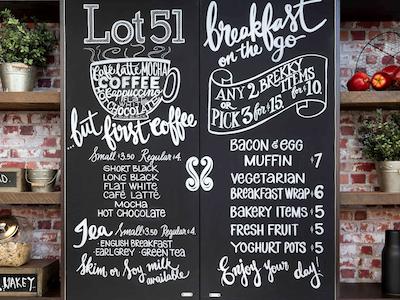 Lot 51
Café latté MOCHA
COFFEE
Cappuccino
CHOCOLATE
...but first coffee
Small $3.50 Regular $4.
SHORT BLACK
LONG BLACK
FLAT WHITE
CAFÉ LATTÉ
MOCHA
HOT CHOCOLATE
Tea Small $3.50 Regular $4.
·ENGLISH BREAKFAST
·EARL GREY ·GREEN TEA
Skim or Soy milk
available
breakfast
on the go
ANY 2 BREKKY
ITEMS
OR
FOR $10.
PICK 3 FOR $15.
BACON & EGG
MUFFIN $7
VEGETARIAN
BREAKFAST WRAP $6
BAKERY ITEMS $5
FRESH FRUIT $5
YOGHURT POTS $5
Enjoy your day!
WAKEY.